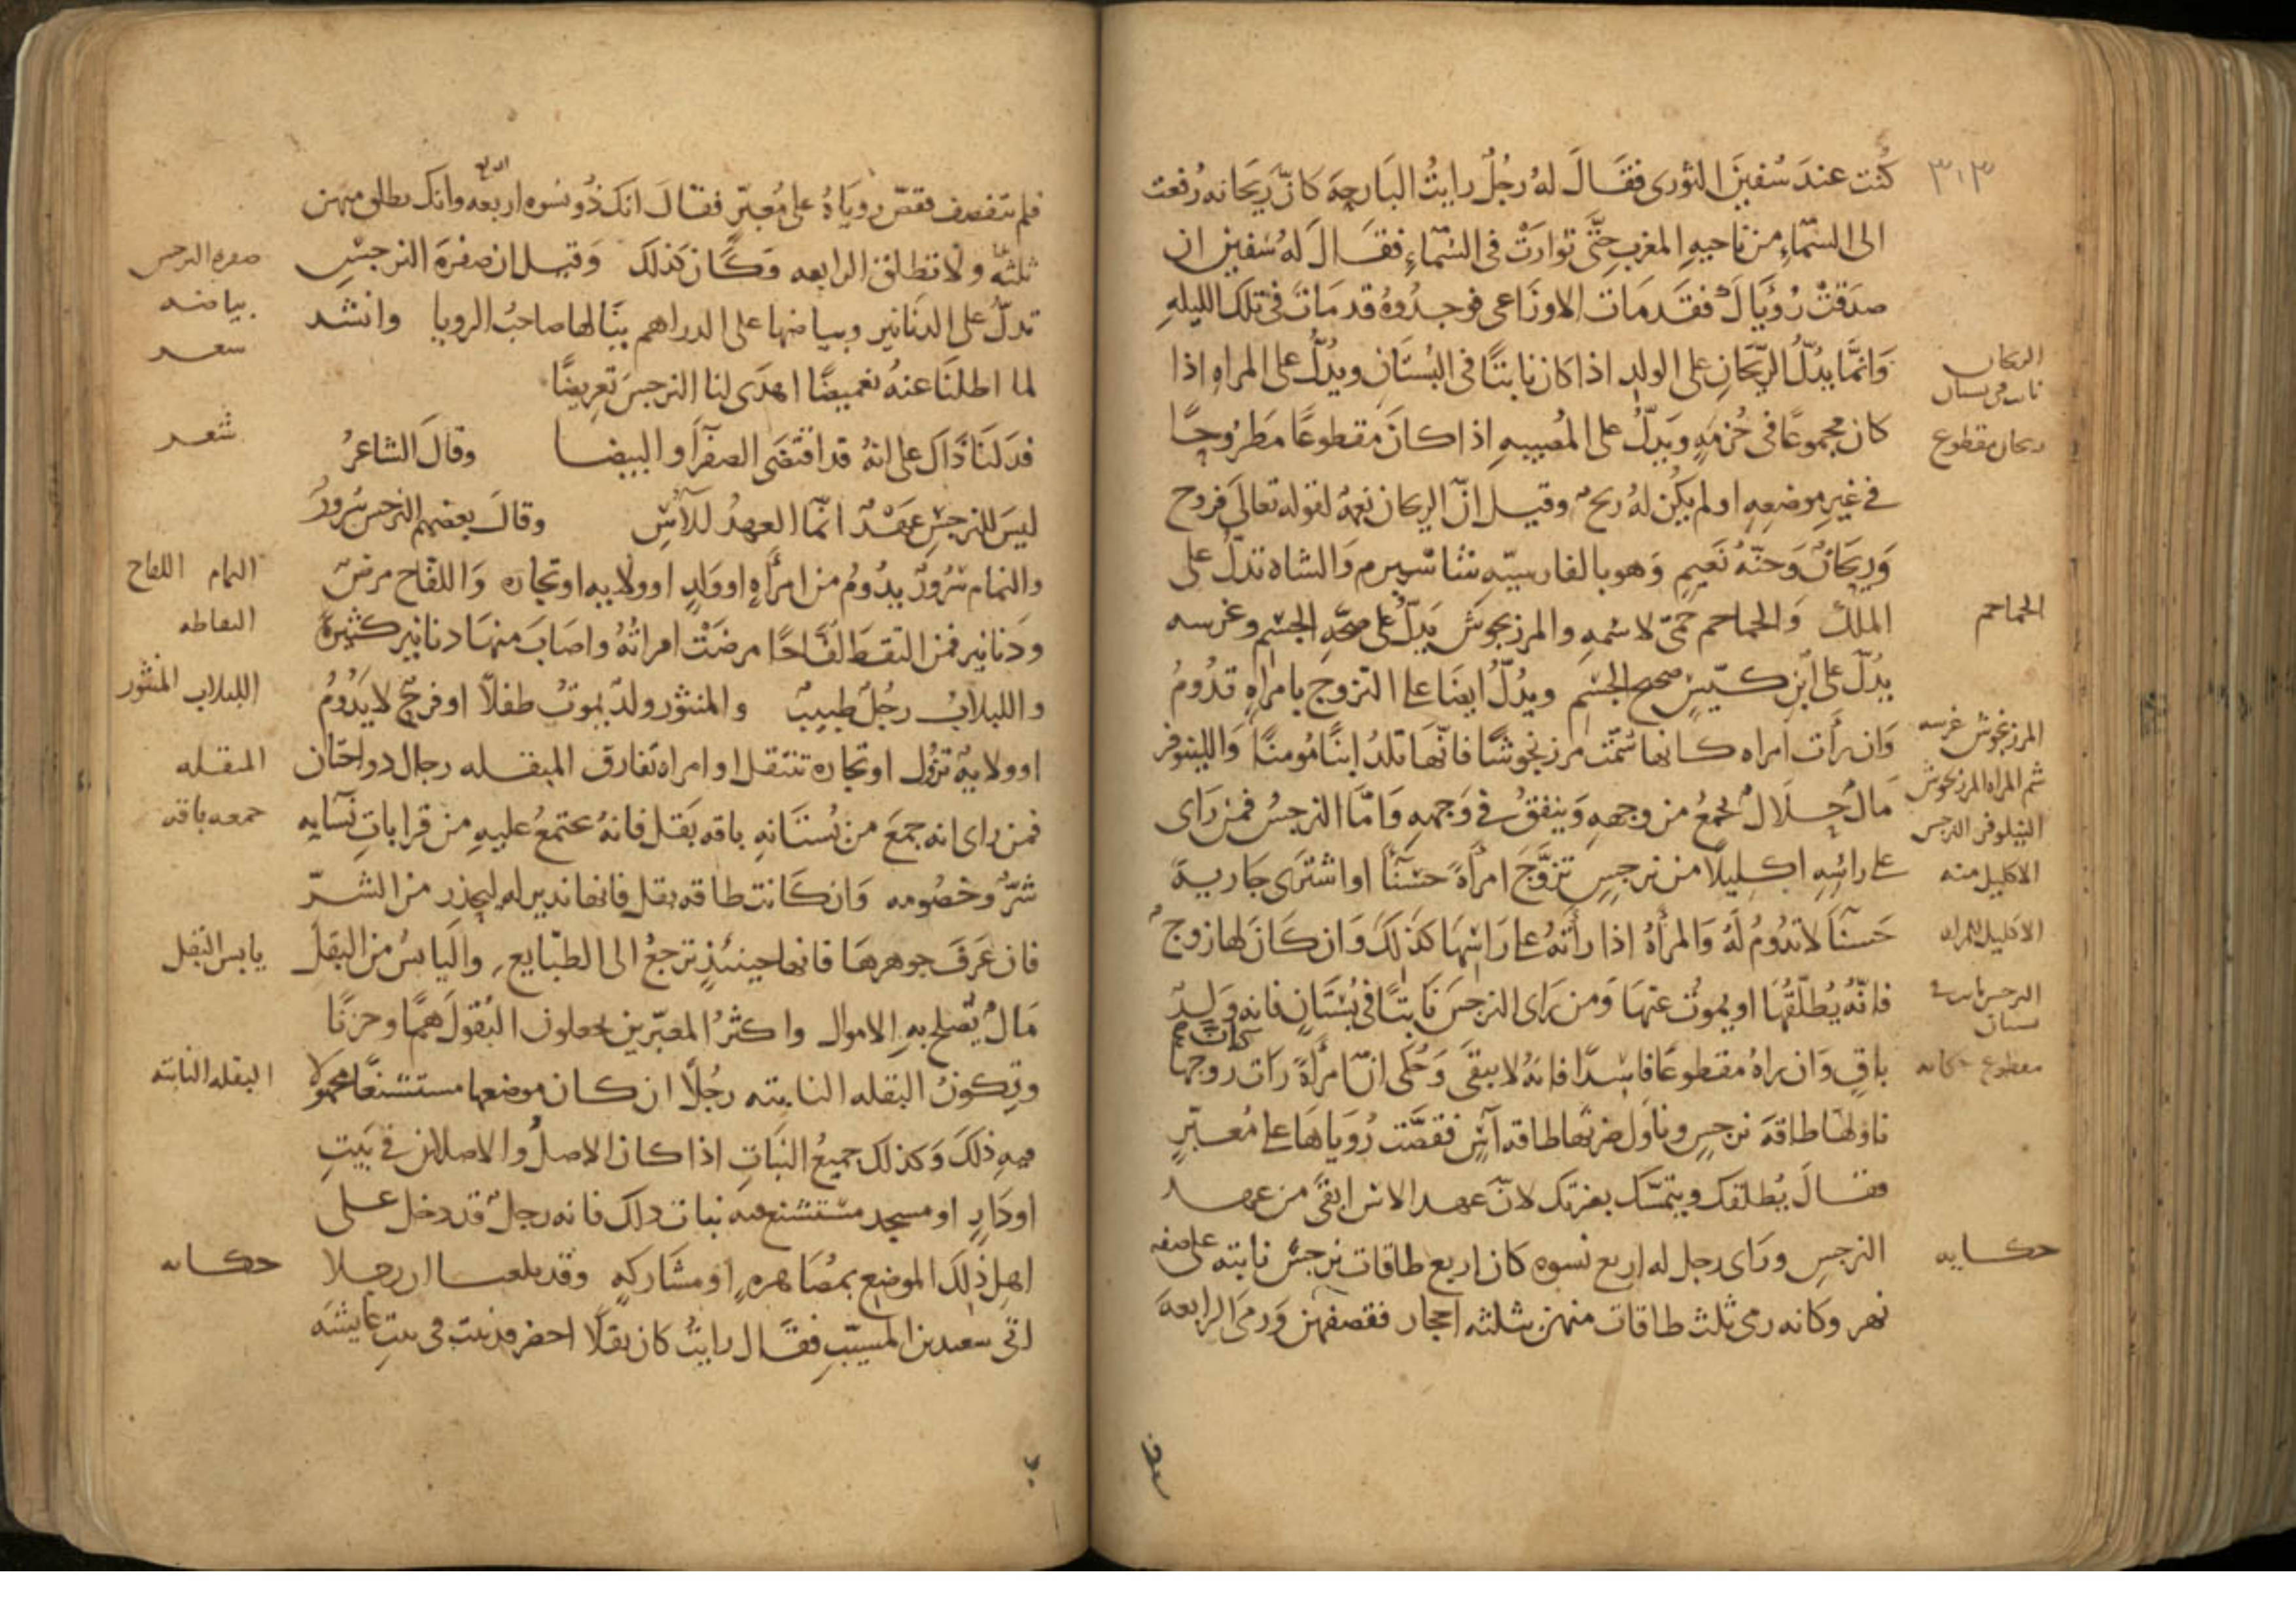 ٣٠٣
كُنت عندَ سُفينَ الثوری فقَالَ لهُ رجُلٌ رايتُ البَارحِهَ كانّ رَيحَانه رُفعت
الى السّمَاءِ من ناحيهِ المغربِ حتَّى توارَتْ فى السّمَاءِ فقَالَ لهُ سُفين ان
صدَقتْ رُؤيَاكَ فقَدمَات الاوزَاعى فوجدُوهُ قدمَاتَ فى تلكَ الليلهِ
وَانمَّا يدُلّ الريّحَانِ على الولدِ اذا كان نابتًا فى البُستَانِ ويدُلُّ على المراهِ اذا
كان مجموعًا فى حُزمَهٍ ويَدلّ على المُصيبهِ اذا كانَ مقطوعًا مَطرُوحًا
فى غيرِ موضعِهِ او لم يكُن لهُ ريحٌ وقيل انّ الريحان نعمهٌ لقوله تعالىَ فروح
وَريحَانٌ وَجنّهُ نَعيمٍ وَهو بالفارسيّهِ شاسْبرم وَالشاه تدلّ على
الملكِ وَالحماحم حمّى لاسْمهِ والمرزنجوشَ يَدلّ على صحّهِ الجسْمِ وغرسه
يدُلّ على ابْنٍ كيّسٍ صحيح الجسْمِ ويدُلّ ايضَا على التزوج بامراهٍ تدُومُ
وَان رأَت امراه كانها شمّت مرزنجوشًا فانّهَا تلدُ ابنًا مُومنًا وَاللينوفر
مَالٌ حلَالٌ يجمعُ من وجههِ وَينفقُ فى وَجههِ وَامّا النرجسُ فمن رَاى
على راسِهِ اكليلًا من نرجسٍ تزوَّجَ امرأةً حسْنَآً او اشترَى جَاريةً
حَسنَآ لاتدُومُ لَهُ وَالمرأهُ اذا رأتهُ على رَاسِهَا كذلكَ وَان كانَ لها زوجٌ
فانّهُ يُطلّقُهَا او يموتُ عنهَا وَمن رَاى النرجسَ نَابتًا فى بُسْتَانٍ فانه وَلدٌ
باقٍ وَان راهُ مقطوعًا فاسْدًا فانهُ لا يبقَى وَحُكى انّ امرأةً رَات زوجها
ناولهَا طاقهَ نرجسٍ وناول ضرتها طاقه آسٍ فقصَّت رُويَاهَا على مُعبّرٍ
فقالَ يُطلقك ويتمسّك بضرتك لانّ عهد الاس ابقَى من عهد
النرجسِ ورَاى رجل له اربع نسوه كان اربع طاقات نرجسٍ نابته على ضفه
نهر وكانه رمى ثلث طاقات منهن بثلثه احجار فقصفهن وَرمَى الرابعهَ
الريحان
نابت فى بستان
ريحان مقطوع
الحماحم
المرزنجوش غرسه
شم المراه المرزنجوش
النيلوفر النرجس
الاكليل منه
الاكليل للمراه
النرجس نابت فى
بستان
مقطوع حكايه
حكايه
فلم تنقصف فقصّ روياهُ على مُعبّرٍ فقالَ انكَ ذُو نسْوه اربعه وانك تطلق منهن
ثلثهً ولا تطلق الرابعه وَكَانَ كذلكَ وَقيل ان صفرَهَ النرجسِ
تدلُّ على الدنَانير وبياضها على الدراهم ينَالها صاحبُ الرويا وانشد
لما اطلنَا عنهُ تغميضًا اهدَى لنا النرجسَ تعريضًا
فدَلنَا ذَاكَ على انهُ قد اقتضَى الصفرَآ والبيضا وقالَ الشاعرُ
ليسَ للنرجسِ عَهْدٌ انّمَا العهدُ للآسِ وقالَ بعضهم النرجس سُرورٌ
والنمام سُرورٌ يدُومُ من امرأَهٍ او وَلدٍ او ولايه او تجاره وَاللفّاح مرضٌ
وَدنانير فمن التقطَ لفَّاحًا مرضَتْ امراتُهُ واصَابَ منهَا دنانير كثيرةً
واللبلابُ رجُلٌ طبيبٌ والمنثور ولدٌ يموتُ طفلًا او فرحٌ لا يَدُومُ
او ولايهٌ تزُولُ او تجاره تنتقل او امراه تفارق المبقله رجال ذو احزان
فمن راى انه جمعَ من بُستَانهِ باقه بَقل فانهُ يجتمعُ عليهِ من قراباتِ نسَآيه
شرٌّ وَخصُومه وَان كَانت طاقه بقل فانها نذير له ليحذر من الشرّ
فان عَرفَ جوهرهَا فانها حينئذٍ ترجعُ الى الطبَايع وَاليَابسُ من البقلِ
مَالٌ يُصلح بهِ الاموال واكثرُ المعبّرين يجعلون البُقولَ همًّا وحزنًا
وتكونُ البقله النابته رجُلًا ان كان موضعها مستشنعًا
فيهِ ذلكَ وَكذلك جميعُ النبَاتِ اذا كان الاصلُ والاصلان فى بَيتٍ
او دَارٍ او مسجدٍ مستشنع فيه نبات ذلك فانه رجلٌ قد دخل على
اهلِ ذلكَ الموضعِ بمصَاهرهٍ او مشَاركهٍ وقد بلغنا ان رجلا
اتى سعيد بن المسيّبِ فقَال رايتُ كان بقلًا اخضر قد نبت فى بيتِ عايشَه
صفره النرجس
بياضه
شعر
شعر
النمام اللفاح
التقاطه
اللبلاب المنثور
المبقله
جمعه باقه
يابس البقل
البقله النابته
حكايه